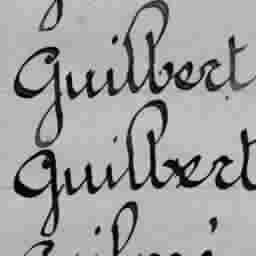 Guilbert
Guilbert